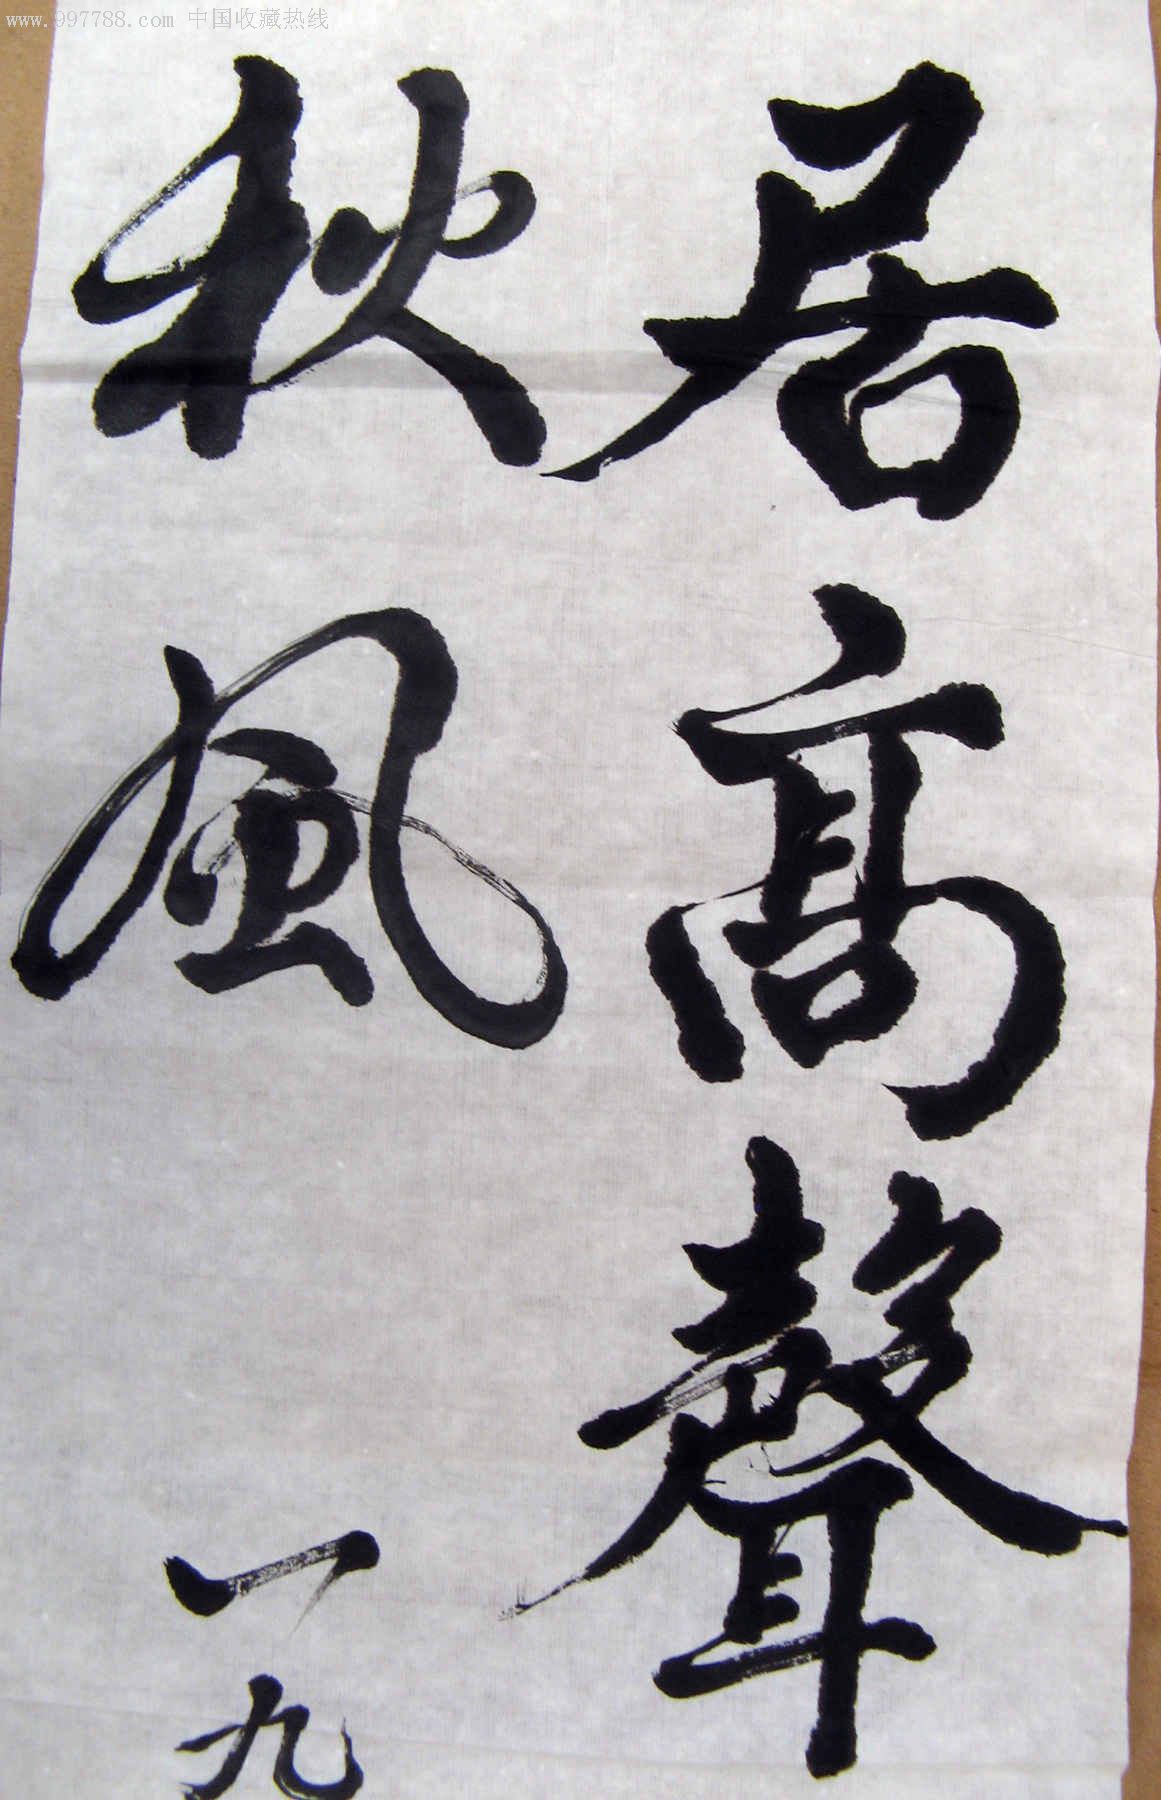 www.997788.com 中国收藏热线
居高聲
秋風
一九